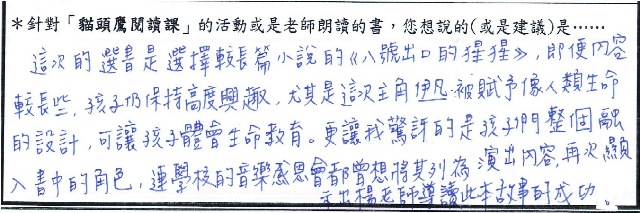 ＊針對「貓頭鷹閱讀課」的活動或是老師朗讀的書，您想說的(或是建議)是……
這次的選書是選擇較長篇小說的《八號出口的猩猩》，即便內容
較長些，孩子仍保持高度興趣，尤其是這次主角伊凡被賦予像人類生命
的設計，可讓孩子體會生命教育。更讓我驚訝的是孩子們整個融
入書中的角色，連學校的音樂感恩會都曾想將其列為演出內容，再次顯
示出楊老師導讀此本故事的成功。